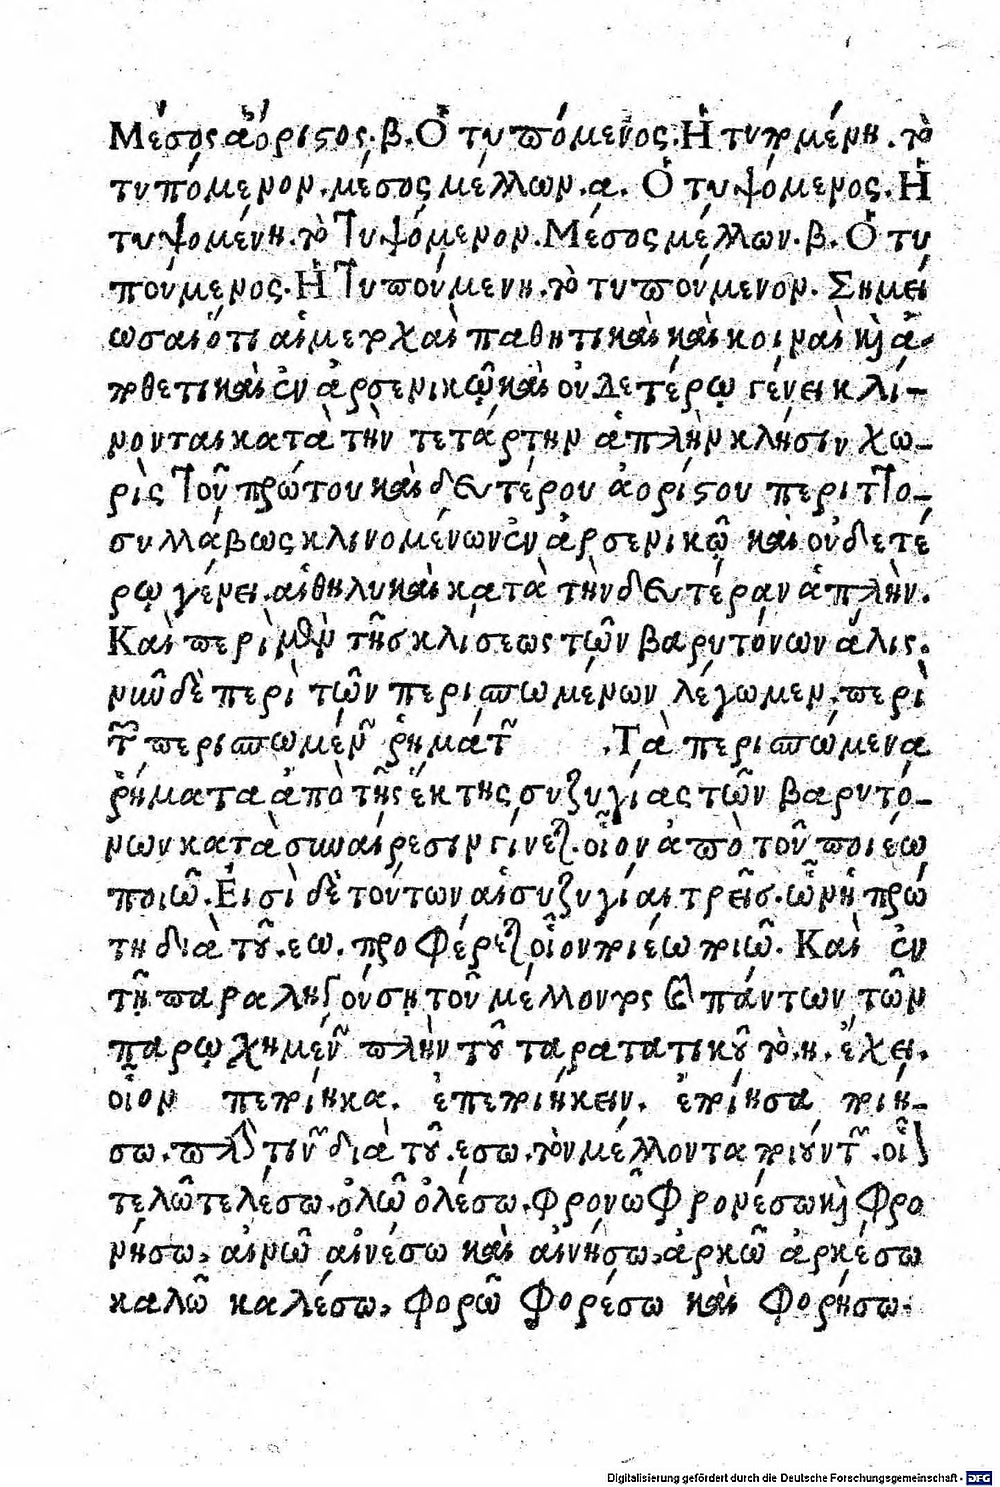 Μέσος ἀόριστος. β. Ὁ τυπόμενος. Ἡ τυπομένη. τὸ
τυπόμενον. μέσος μέλλων. α. Ὁ τυψόμενος. Ἡ
τυψομένη. τὸ Τυψόμενον. Μέσος μέλλων. β. Ὁ τυ
πούμενος. Ἡ Τυπουμένη. τὸ τυπούμενον. Σημεί
ωσαι ὅτι αἱ μετοχαὶ παθητικαὶ καὶ κοιναὶ καὶ ἀ-
ποθετικαὶ ἐν ἀρσενικῷ καὶ οὐδετέρῳ γένει κλί-
νονται κατὰ τὴν τετάρτην ἁπλῆν κλῆσιν χω-
ρὶς Τοῦ πρώτου καὶ δευτέρου ἀορίστου περιττο-
συλλάβως κλινομένων ἐν ἀρσενικῷ καὶ οὐδετέ
ρῳ γένει. αἱ θηλυκαὶ κατὰ τὴν δευτέραν ἁπλῆν.
Καὶ περὶ μὲν τῆς κλίσεως τῶν βαρυτόνων ἅλις.
νῦν δὲ περὶ τῶν περισπωμένων λέγωμεν. περὶ
τῶν περισπωμένων ῥημάτων .Τὰ περισπώμενα
ῥήματα ἀπὸ τῆς ἕκτης συζυγίας τῶν βαρυτό-
νων κατὰ συναίρεσιν γίνεται. οἷον ἀπὸ τοῦ ποιέω
ποιῶ. Εἰσὶ δὲ τούτων αἱ συζυγίαι τρεῖς. ὧν ἡ πρώ
τη διὰ τοῦ. εω. προφέρεται οἷον ποιέω ποιῶ. Καὶ ἐν
τῇ παραληγούσῃ τοῦ μέλλοντος καὶ πάντων τῶν
παρῳχημένων πλὴν τοῦ παρατατικοῦ τὸ. η. ἔχει.
οἷον πεποίηκα. ἐπεποιήκειν. ἐποίησα ποιή-
σω. πλὴν τινῶν διὰ τοῦ. εσω. τὸν μέλλοντα ποιούντων. οἷον
τελῶ τελέσω. ὀλῶ ὀλέσω. φρονῶ φρονέσω καὶ φρο
νήσω, αἰνῶ αἰνέσω καὶ αἰνήσω, ἀρκῶ ἀρκέσω
καλῶ καλέσω, φορῶ φορέσω καὶ φορήσω.
Digitalisierung gefördert durch die Deutsche Forschungsgemeinschaft - DFG